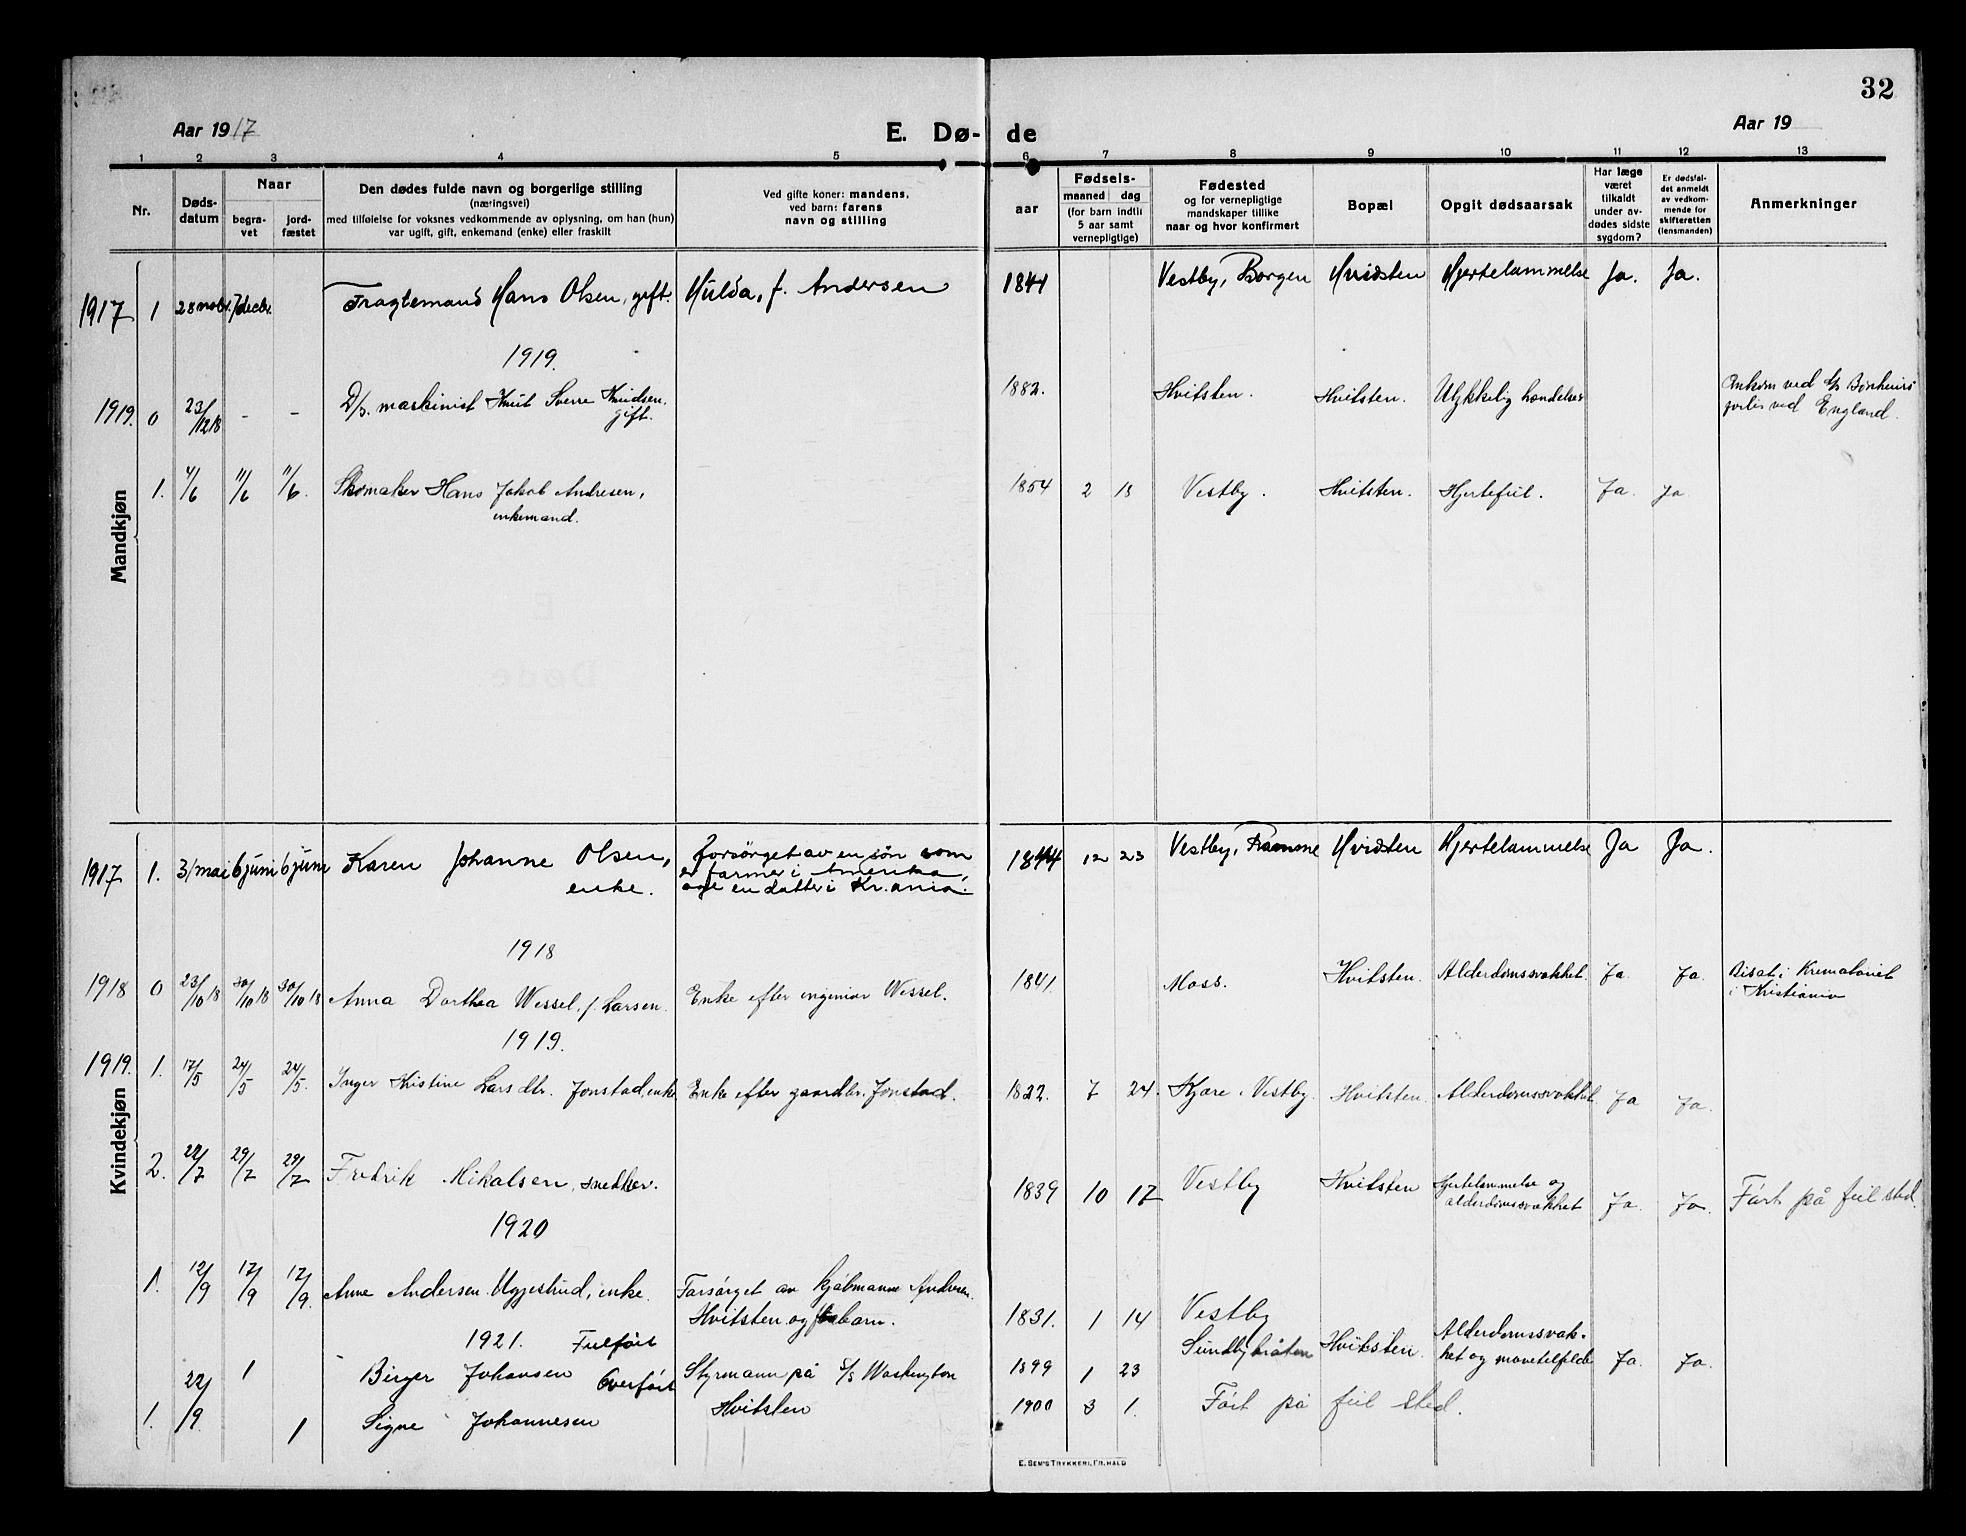 32
Aar 1917
E. Dø- de
Aar 19
1 2 3 4 5 6 7 8 9 10 11 12 13
Nr.
Døds-
datum
Naar
begra-
vet
jord-
fæstet
Den dødes fulde navn og borgerlige stilling
(næringsvei)
med tilføielse for voksnes vedkommende av oplysning, om han (hun)
var ugift, gift, enkemand (enke) eller fraskilt
Ved gifte koner: mandens,
ved barn: farens
navn og stilling
aar
Fødsels-
maaned dag
(for barn indtil
5 aar samt
vernepligtige)
Fødested
og for vernepligtige
mandskaper tillike
naar og hvor konfirmert
Bopæl
Opgit dødsaarsak
Har læge
været
tilkaldt
under av-
dødes sidste
sygdom?
Er dødsfal-
det anmeldt
av vedkom-
mende for
skifteretten
(lensmanden)
Anmerkninger
Mandkjøn
1917 1 28 novbr. 7 decbr. Fragtemand Hans Olsen, gift. Hulda, f. Andersen 1844 Vestby, Borgen Hvidsten Hjertelammelse Ja. Ja.
1919.
1919. 0 23/12 18 - - D/s. maskinist Knut Sverre Knudsen. 1882. Hvitsten. Hvitsten. Ulykkelig hændelse Omkom ved
gift. forlis ved England.
1. 4/6 11/6 11/6. Skomaker Hans Jakob Andresen, 1854 2 18 Vestby. Hvitsten. Hjertefeil. Ja. Ja
enkemand.
Kvindekjøn
1917 1. 31 mai 6 juni 6 juni Karen Johanne Olsen, forsørget av en søn som 1844 12 23 Vestby, Ramme Hvidsten Hjertelammelse Ja Ja.
enke. er farmer i Amerika,
og en datter i Kr.ania.
1918
1918 0 23/10 18 30/10 18 30/10 18 Anna Dorthea Wessel, f. Larsen. Enke efter ingeniør Wessel. 1841. Moss. Hvitsten. Alderdomssvakhet. Ja. Ja. Bisat i Krematoriet
i Kristiania
1919.
1919. 1. 17/5 24/5 24/5. Inger Kristine Larsdtr. Jonstad, enke Enke efter gaardbr. Jonstad. 1822. 7 24. Kjære i Vestby. Hvitsten. Alderdomssvakhet Ja Ja.
2. 22/7 29/7 29/7 Fredrik Mikalsen, snedker. 1839 10 17 Vestby Hvitsten Hjertelammelse og
alderdomssvakhet Ja. Ja. Ført på feil sted.
1920
1. 12/9 17/9 17/9. Anne Andersen Uggestrud, enke. Forsørget av kjøbmann Andresen.
Hvitsten og barn. 1831. 1 14 Vestby
Sundbybråten Hvitsten. Alderdomssvak-
het og mavetilfelde Ja. Ja.
1921. Feilført
1 Birger Johansen Overført Styrmann på S/s Washington 1899 1 23
1. 22/9 1 Signe Johannesen Hvitsten 1900 3 1. Ført på feil sted.
E. SEM'S TRYKKERI, FR.HALD